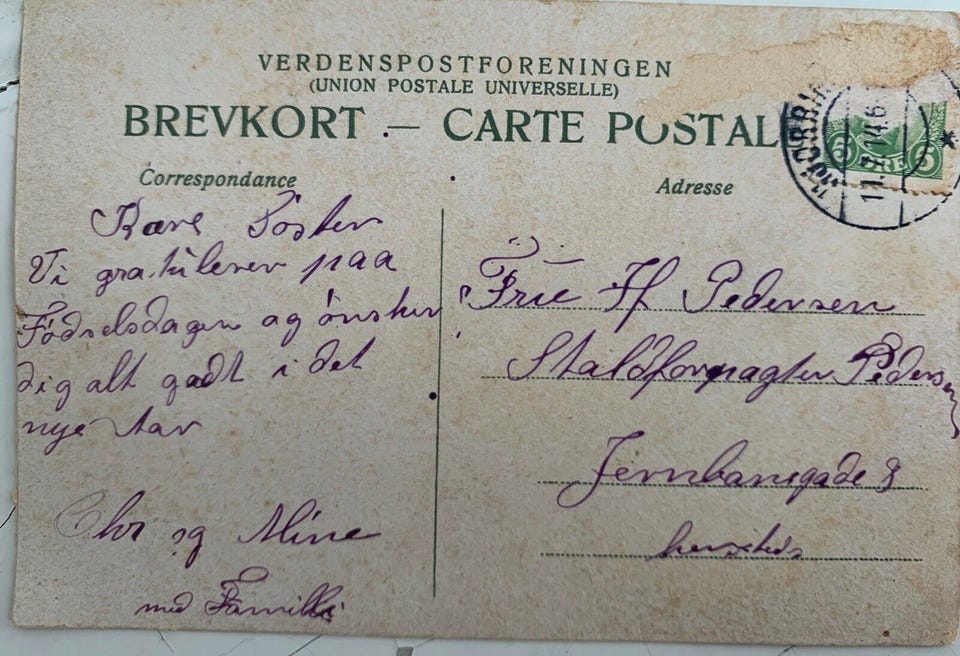 VERDENSPOSTFORENINGEN
(UNION POSTALE UNIVERSELLE)
BREVKORT — CARTE POSTAL
Correspondance
Adresse
HJØRRIN
11.
5 5
Kære Søster
Vi gratulerer paa
Fødselsdagen og ønsker
dig alt godt i det
nye Aar
Chr og Mine
med Familie
Frue H Pedersen
Staldforpagter Pedersen
Jernbanegade 8
hersteds